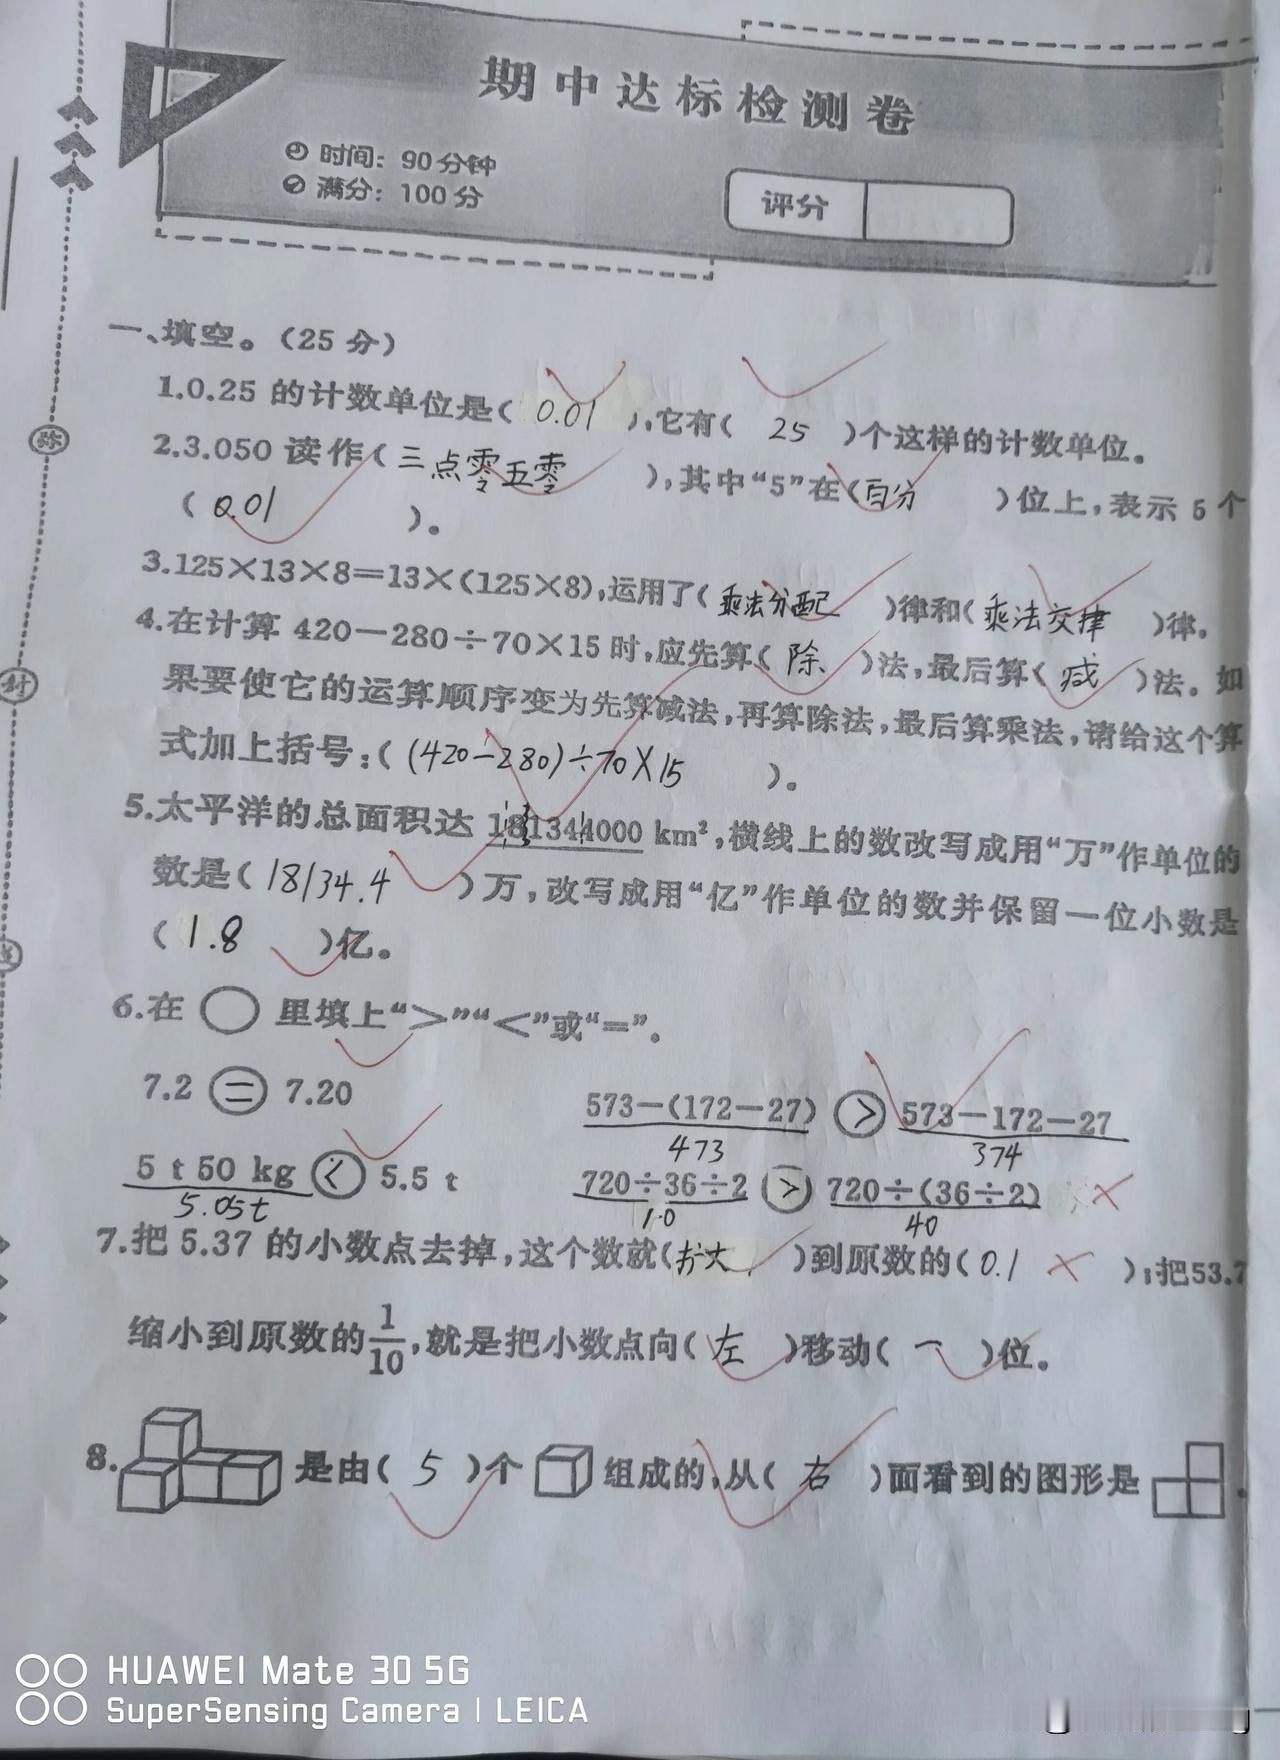 期中达标检测卷
时间：90分钟
满分：100分
评分
一、填空。（25分）
1.0.25 的计数单位是（ 0.01 ），它有（ 25 ）个这样的计数单位。
2.3.050 读作（三点零五零 ），其中“5”在（百分 ）位上，表示 5 个
（ 0.01 ）。
3.125×13×8=13×(125×8)，运用了（ 乘法分配 ）律和（ 乘法交律 ）律。
4.在计算 420－280÷70×15 时，应先算（ 除 ）法，最后算（ 减 ）法。如
果要使它的运算顺序变为先算减法，再算除法，最后算乘法，请给这个算
式加上括号：（ (420－280)÷70×15 ）。
5.太平洋的总面积达 181344000 km²，横线上的数改写成用“万”作单位的
数是（ 18134.4 ）万，改写成用“亿”作单位的数并保留一位小数是
（ 1.8 ）亿。
6.在 ○ 里填上“＞”“＜”或“＝”。
7.2 = 7.20 573－(172－27) > 573－172－27
473 374
5 t 50 kg < 5.5 t 720÷36÷2 > 720÷(36÷2)
5.05t 10 40
7.把 5.37 的小数点去掉，这个数就（扩大 ）到原数的（ 0.1 ）；把53.7
缩小到原数的1/10，就是把小数点向（ 左 ）移动（ 一 ）位。
8. 是由（ 5 ）个 组成的，从（ 右 ）面看到的图形是 。
弥
封
HUAWEI Mate 30 5G
SuperSensing Camera | LEICA